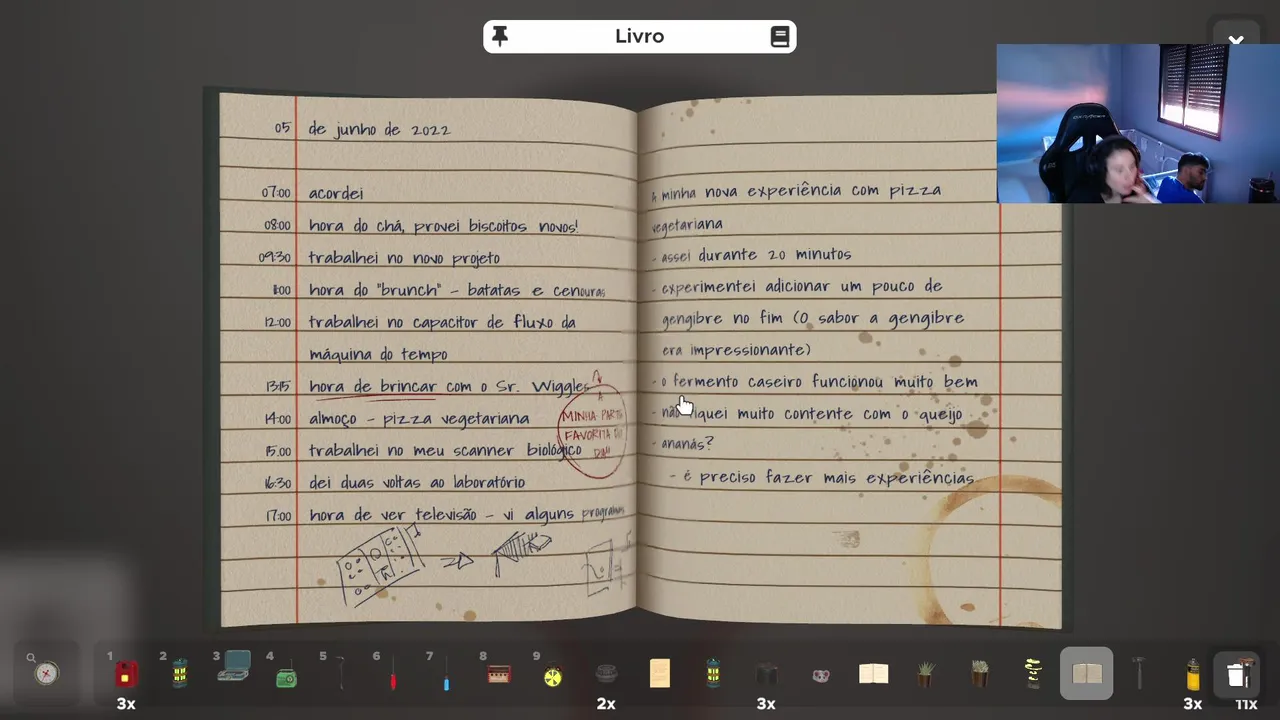 Livro
05 de junho de 2022
07:00 acordei
08:00 hora do chá, provei biscoitos novos!
09:30 trabalhei no novo projeto
11:00 hora do "brunch" - batatas e cenouras
12:00 trabalhei no capacitor de fluxo da
máquina do tempo
13:15 hora de brincar com o Sr. Wiggles
A
MINHA PARTE
FAVORITA DO
DIA!
14:00 almoço - pizza vegetariana
15:00 trabalhei no meu scanner biológico
16:30 dei duas voltas ao laboratório
17:00 hora de ver televisão - vi alguns programas
A minha nova experiência com pizza
vegetariana
- assei durante 20 minutos
- experimentei adicionar um pouco de
gengibre no fim (O sabor a gengibre
era impressionante)
- o fermento caseiro funcionou muito bem
- não fiquei muito contente com o queijo
- ananás?
- é preciso fazer mais experiências
1 2 3 4 5 6 7 8 9
3x 2x 3x 3x 11x